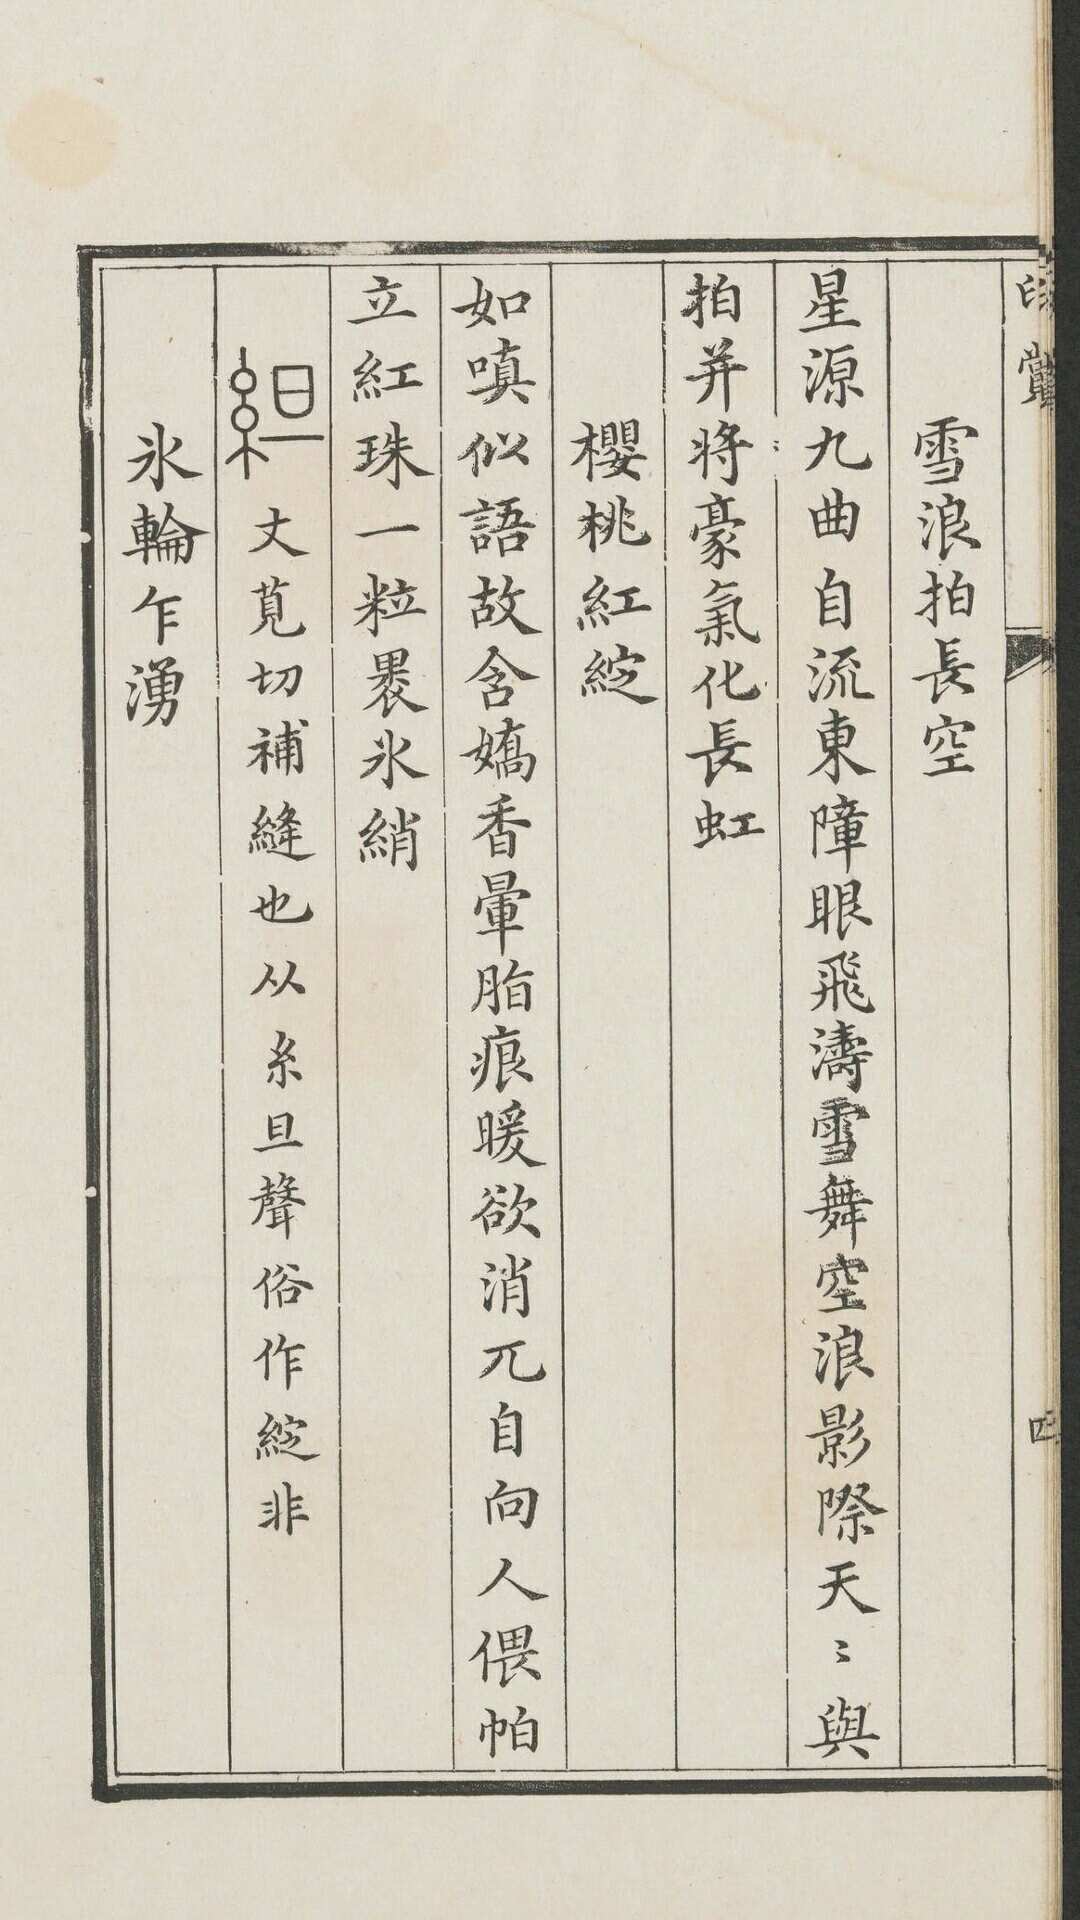 印賞
四
雪浪拍長空
星源九曲自流東障眼飛濤雪舞空浪影際天〻與
拍并將豪氣化長虹
櫻桃紅綻
如嗔似語故含嬌香暈脂痕暖欲消兀自向人偎帕
立紅珠一粒褁氷綃
組丈莧切補縫也从糸旦聲俗作綻非
氷輪乍湧